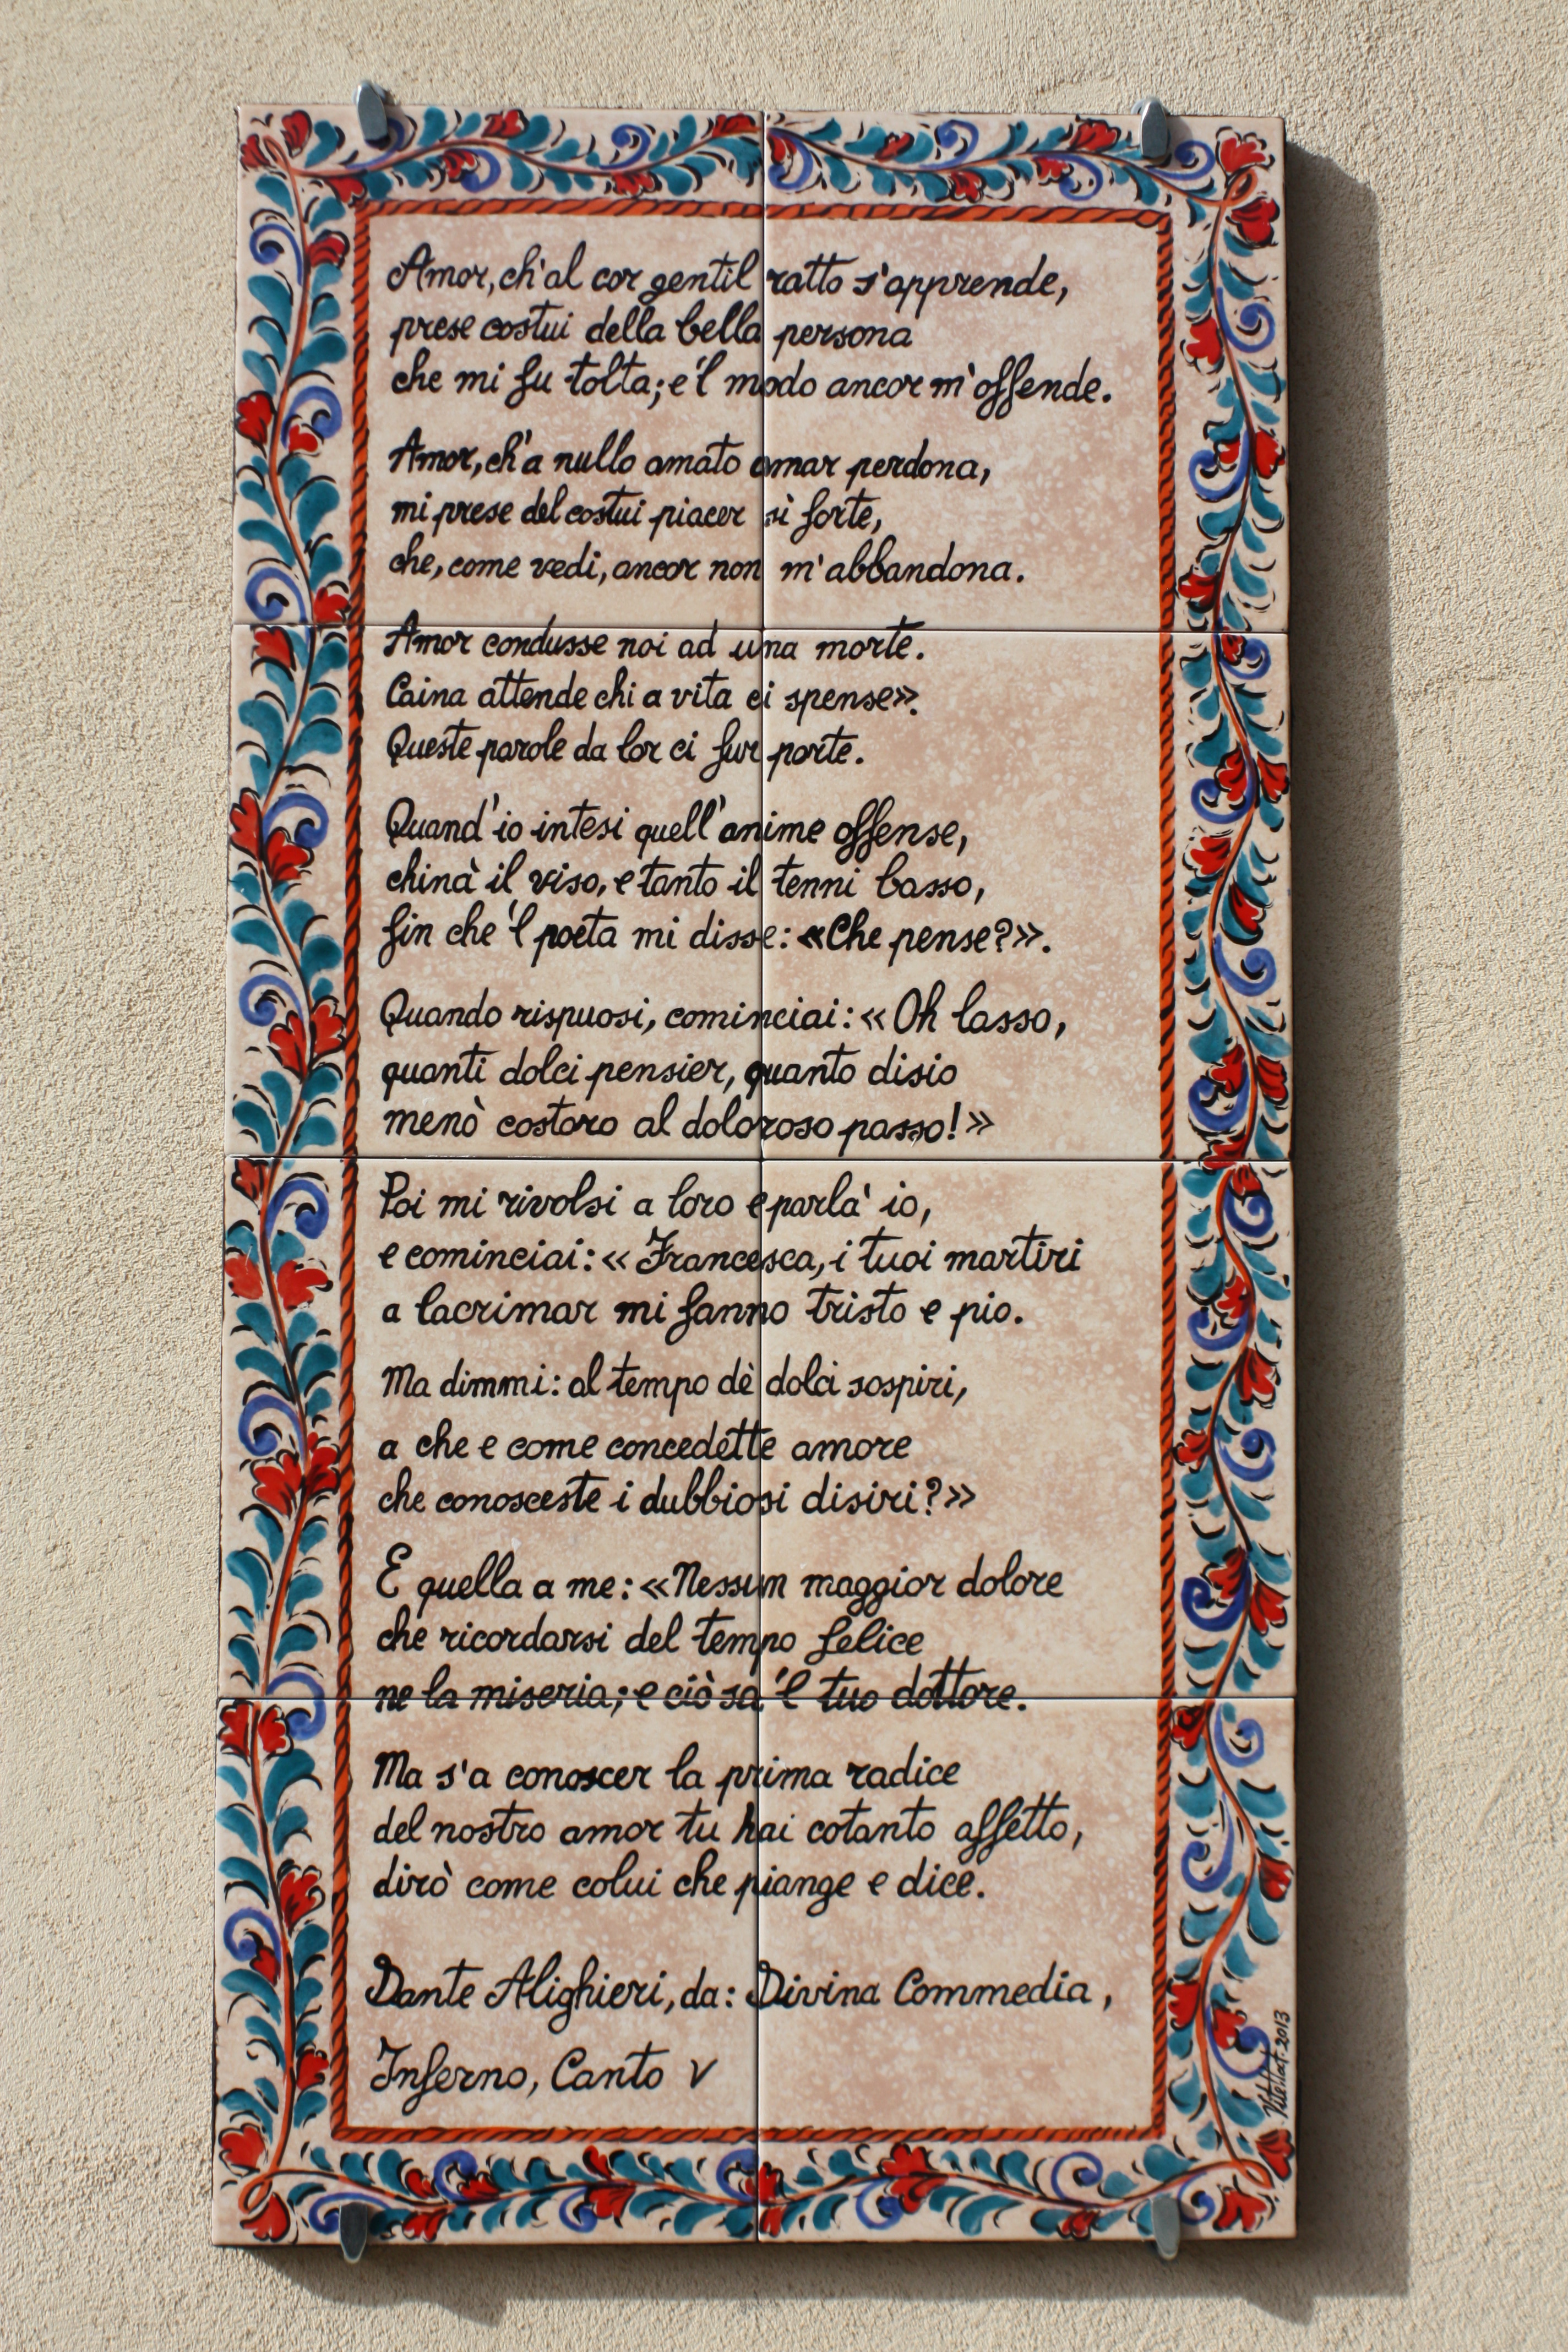 Amor, ch'al cor gentil ratto s'apprende,
prese costui della bella persona
che mi fu tolta; e 'l modo ancor m'offende.
Amor, ch'a nullo amato amar perdona,
mi prese del costui piacer sì forte,
che, come vedi, ancor non m'abbandona.
Amor condusse noi ad una morte.
Caina attende chi a vita ci spense».
Queste parole da lor ci fur porte.
Quand'io intesi quell'anime offense,
chinà il viso, e tanto il tenni basso,
fin che 'l poeta mi disse: «Che pense?».
Quando rispuosi, cominciai: «Oh lasso,
quanti dolci pensier, quanto disio
menò costoro al doloroso passo!»
Poi mi rivolsi a loro e parla' io,
e cominciai: «Francesca, i tuoi martiri
a lacrimar mi fanno tristo e pio.
Ma dimmi: al tempo dè dolci sospiri,
a che e come concedette amore
che conosceste i dubbiosi disiri?»
E quella a me: «Nessun maggior dolore
che ricordarsi del tempo felice
ne la miseria; e ciò sa 'l tuo dottore.
Ma s'a conoscer la prima radice
del nostro amor tu hai cotanto affetto,
dirò come colui che piange e dice.
Dante Alighieri, da: Divina Commedia,
Inferno, Canto V
2013